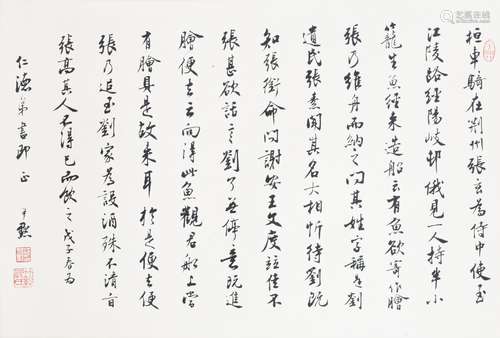 桓車騎在荆州張玄為侍中使至
江陵路經陽岐邨俄見一人持半小
籠生魚徑来造船云有魚欲寄作膾
張乃維舟而納之問其姓字稱是劉
遺民張素聞其名大相忻待劉既
知張銜命問謝安王文度竝佳不
張甚欲話言劉了無停意既進
膾便去云向得此魚觀君船上當
有膾具是故来耳於是便去便
張乃追至劉家為設酒殊不清旨
張高其人不得已而飲之戊子春為
仁德弟書即正
尹默